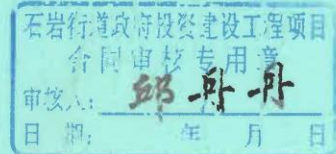 石岩街道政府投资建设工程项目
合同审核专用章
审核人: 邱丹丹
日期: 年 月 日